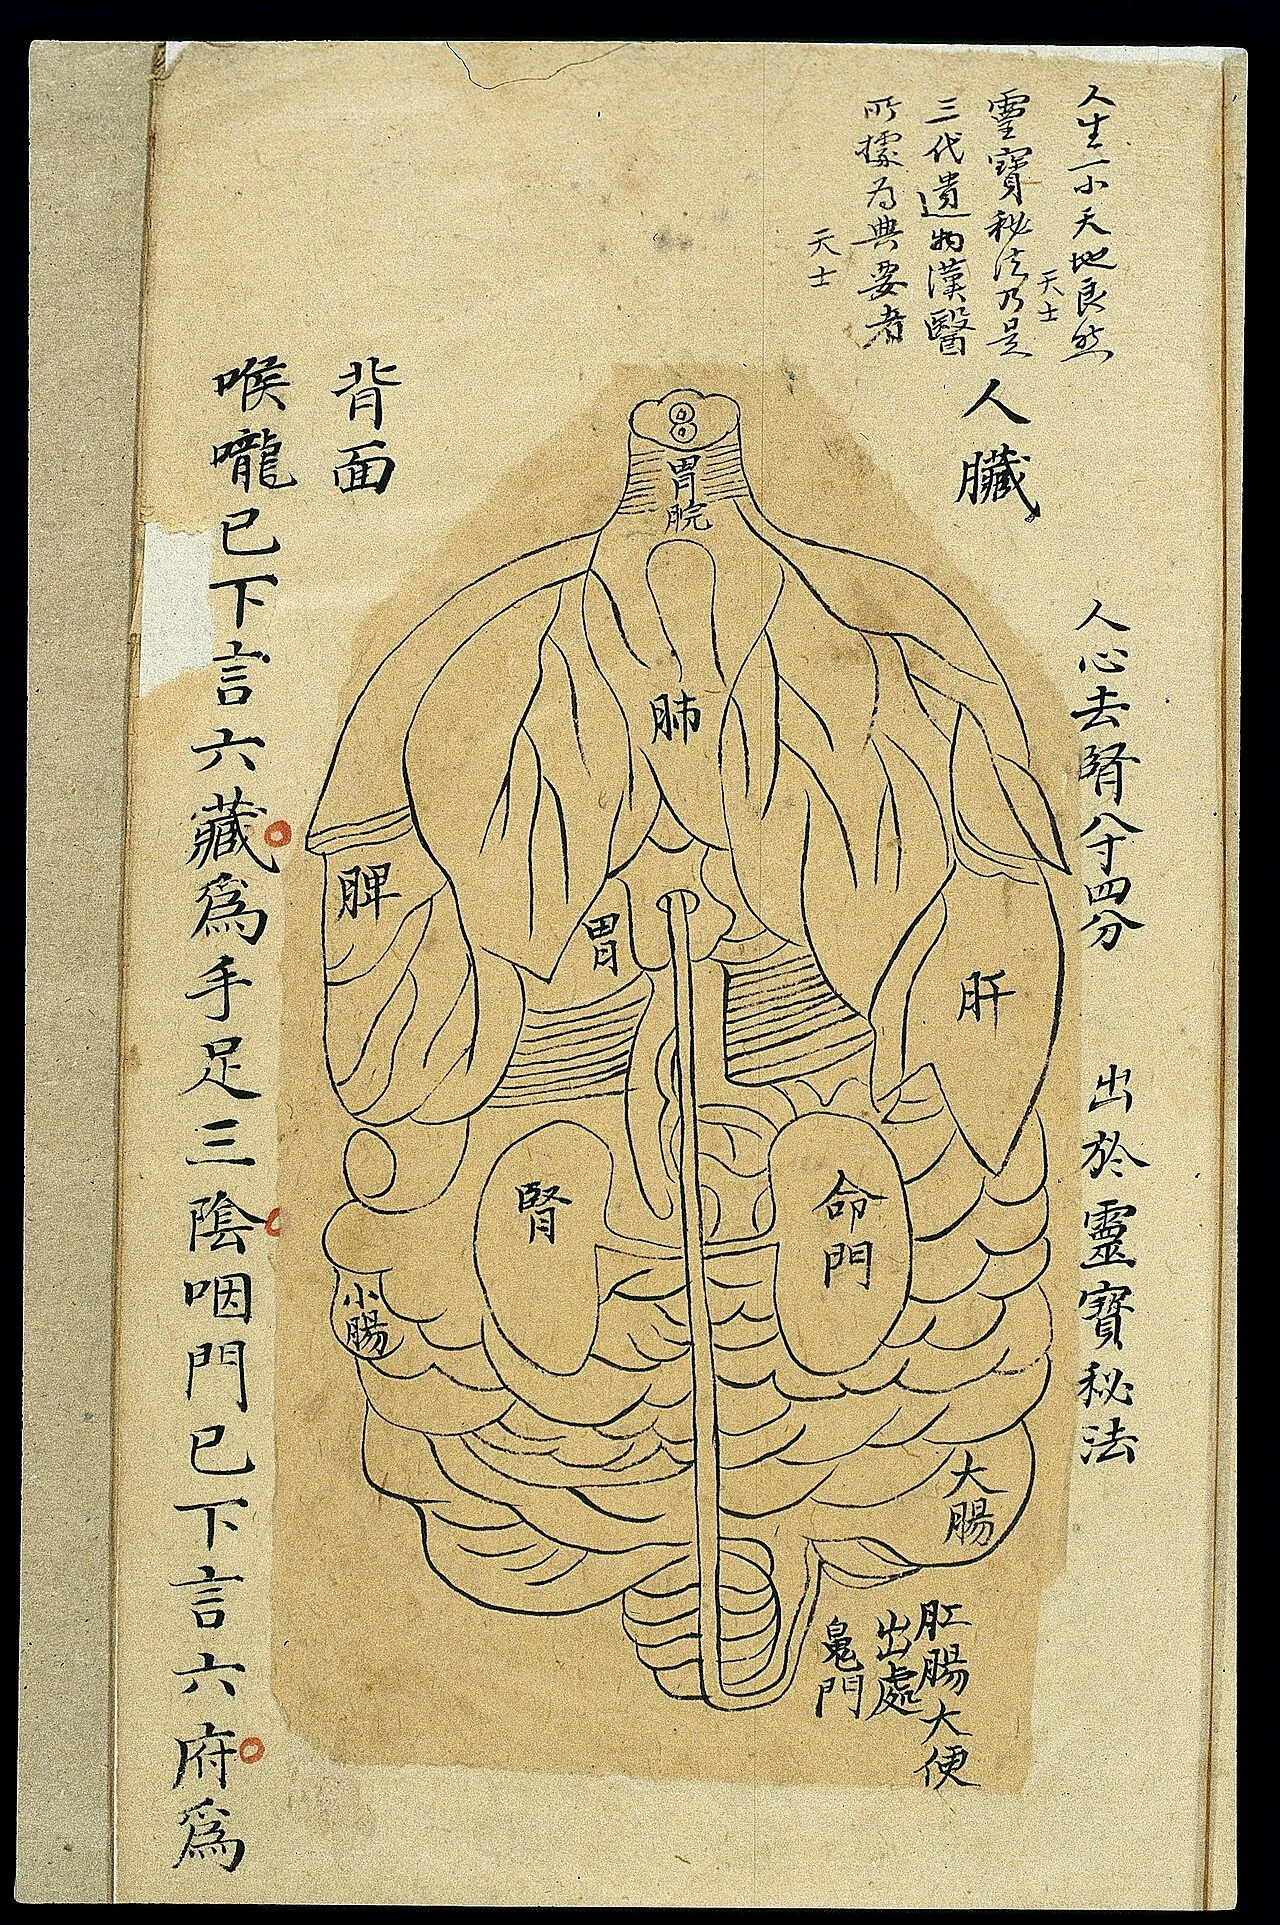 人生一小天地良然
天士
靈寶秘法乃是
三代遺物漢醫
所據為典要者
天士
人臟
人心去腎八寸四分
出於靈寶秘法
背面
喉嚨已下言六藏爲手足三陰咽門已下言六府爲
胃脘
肺
脾
胃
肝
腎
命門
小腸
大腸
肛腸大便
出處
鬼門